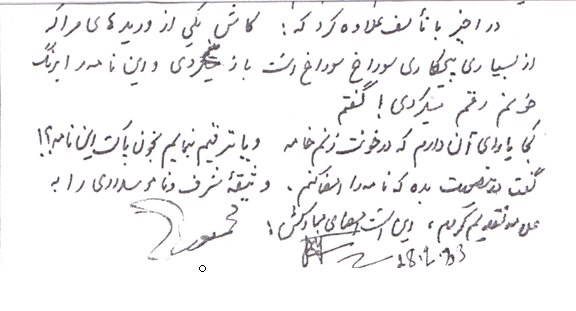 در اخیر با تأسف علاوه کرد که: کاش یکی از وریدهای مرا که
از بسیاری پیچکاری سوراخ سوراخ است باز میکردی و این نامه را برنگ
خونم رقم میکردی! گفتم
کجا یارای آن دارم که درخونت زنم خامه و یا ترقیم نمایم بخون پاکت این نامه؟!
گفت رخصت بده که نامه را امضا کنم. وثیقهٔ شرف و ناموسداری را به
تقدیم کردم، این است امضای مبارکش: